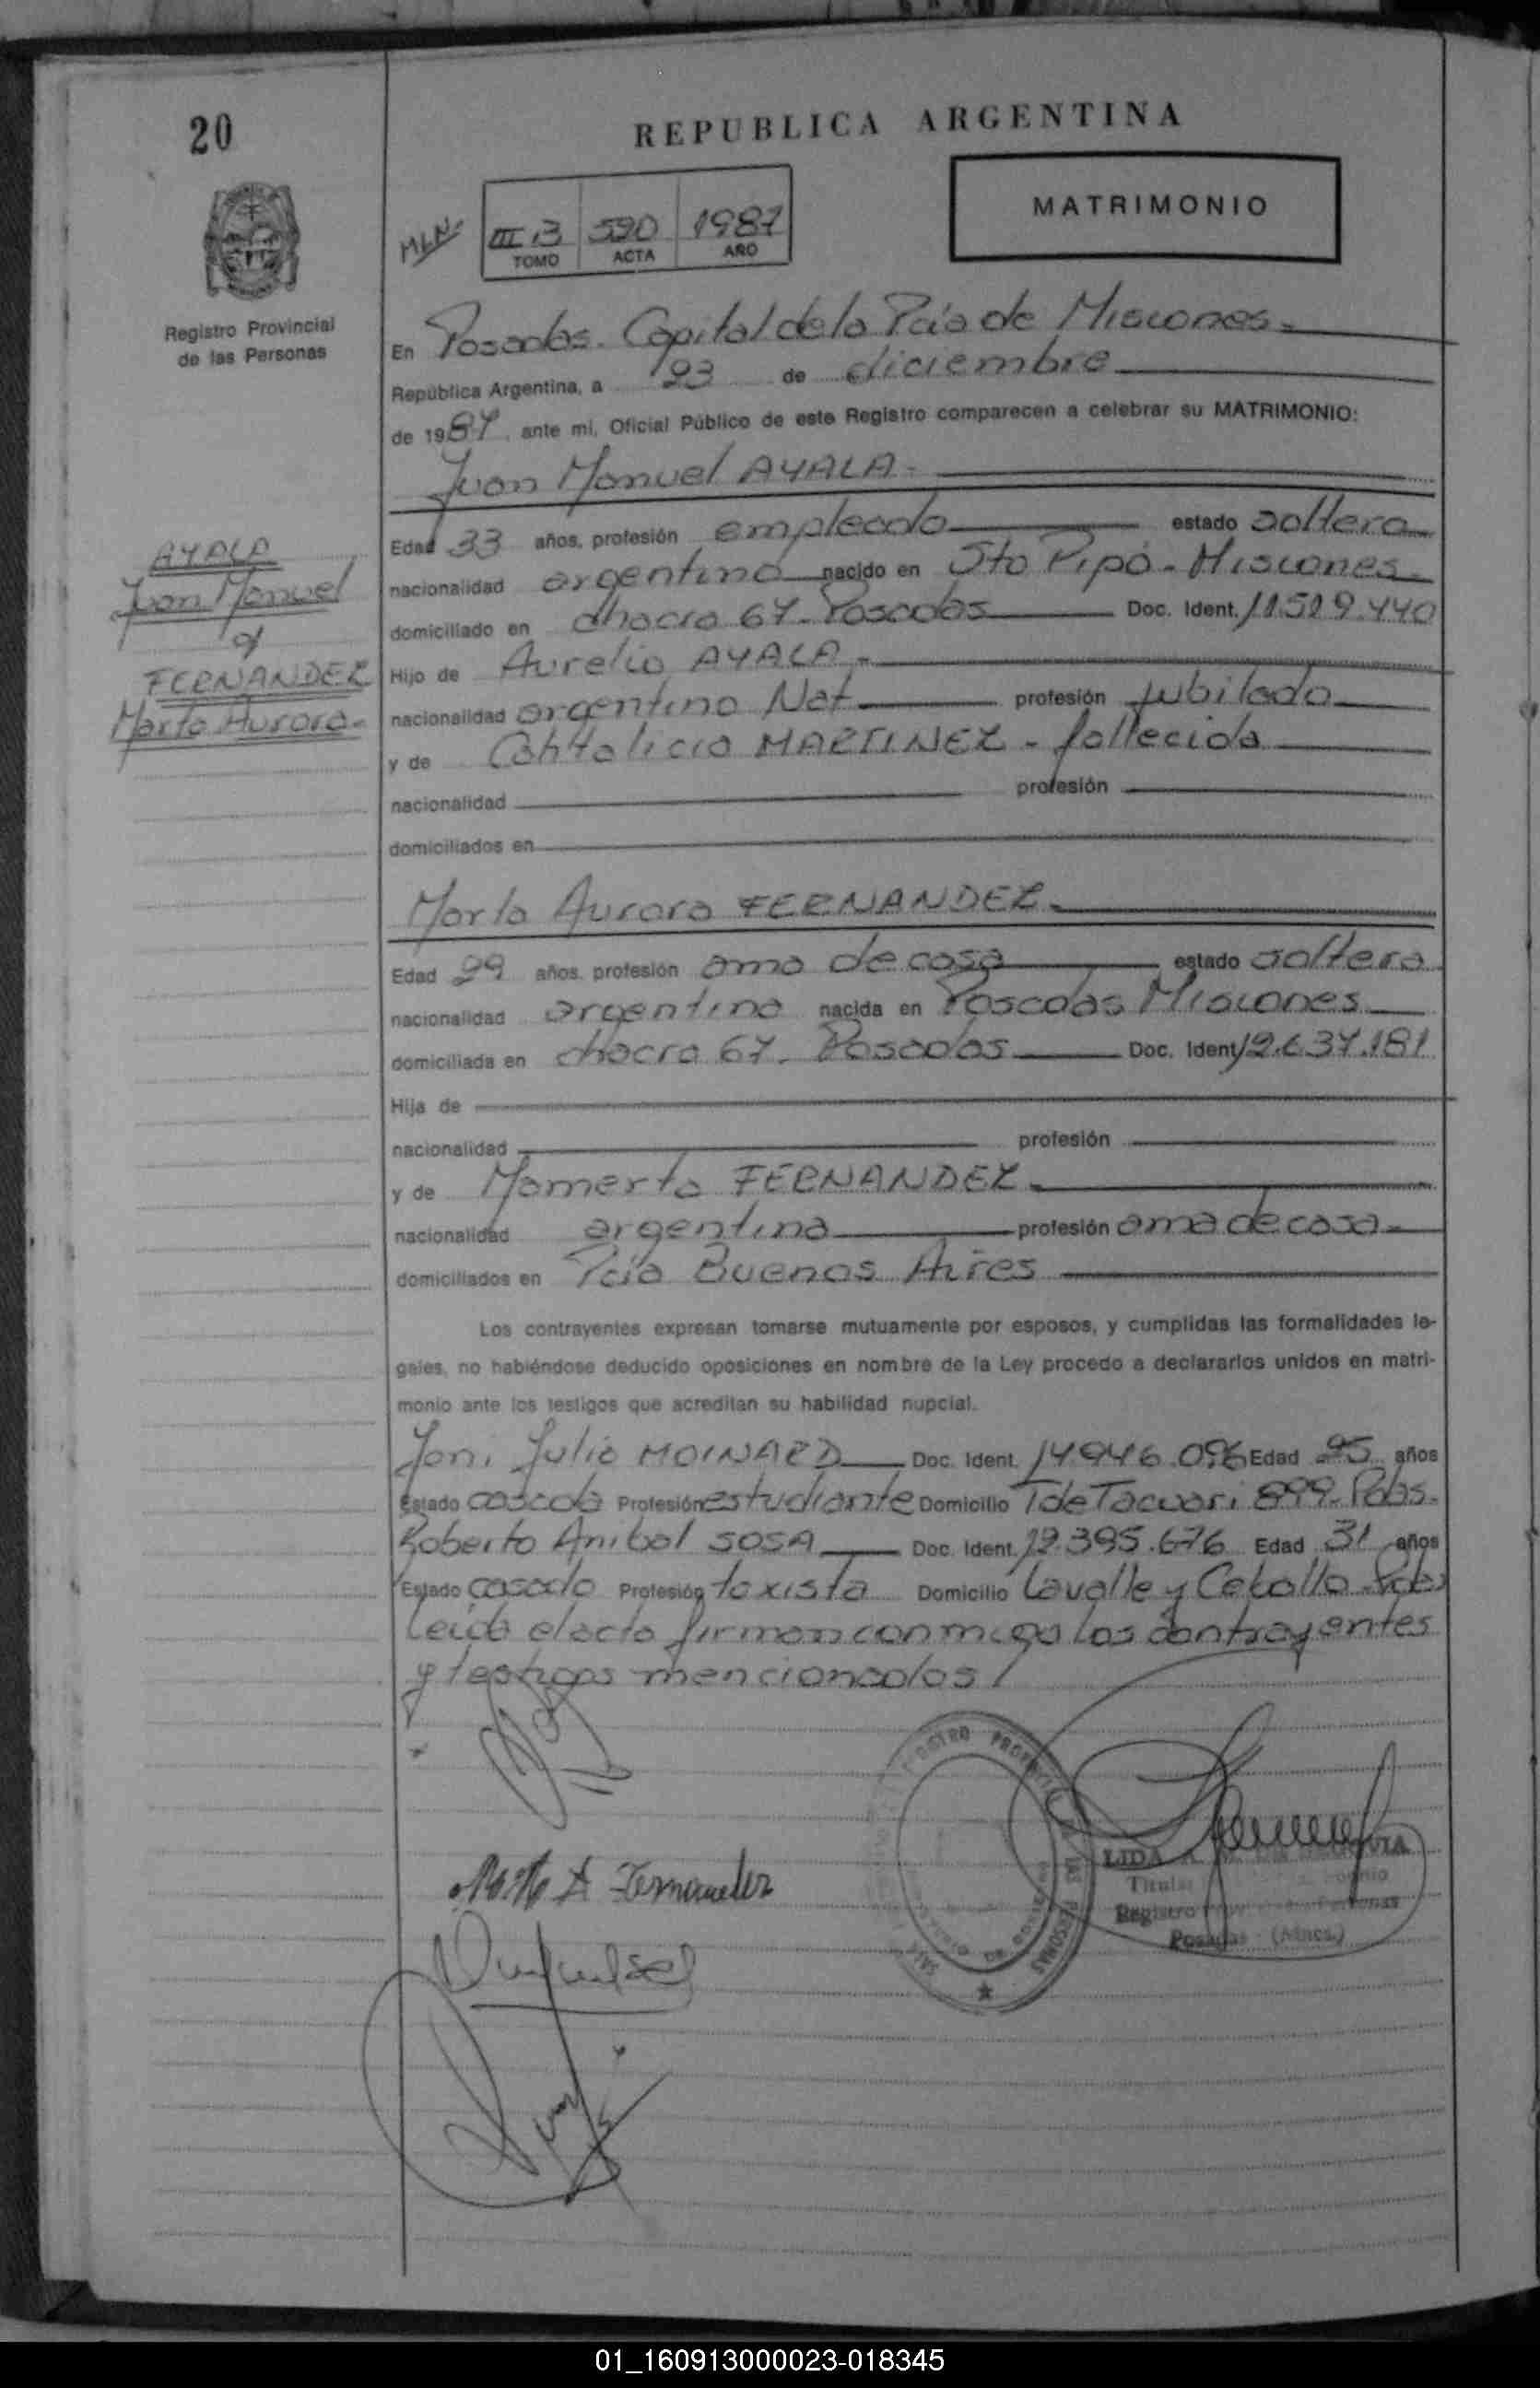 20
REPUBLICA ARGENTINA
MATRIMONIO
III B 590 1987
TOMO ACTA AÑO
Registro Provincial
de las Personas
En Posadas. Capital de la Pcia de Misiones.
República Argentina, a 23 de diciembre
de 1987, ante mi, Oficial Público de este Registro comparecen a celebrar su MATRIMONIO:
Juan Manuel AYALA.
AYALA
Juan Manuel
FERNANDEZ
Marta Aurora.
Edad 33 años, profesión empleado estado soltero
nacionalidad argentino nacido en Sto Pipó. Misiones.
domiciliado en chacra 67. Posadas Doc. Ident. 11.529.440
Hijo de Aurelio AYALA.
nacionalidad argentino Nat profesión jubilado
y de MARTINEZ. fallecida
nacionalidad profesión
domiciliados en
Marta Aurora FERNANDEZ.
Edad 29 años, profesión ama de casa estado soltera
nacionalidad argentina nacida en Posadas Misiones
domiciliada en chacra 67. Posadas Doc. Ident 12.637.181
Hija de
nacionalidad profesión
y de Mamerta FERNANDEZ.
nacionalidad argentina profesión ama de casa.
domiciliados en Pcia Buenos Aires
Los contrayentes expresan tomarse mutuamente por esposos, y cumplidas las formalidades le-
gales, no habiéndose deducido oposiciones en nombre de la Ley procedo a declararlos unidos en matri-
monio ante los testigos que acreditan su habilidad nupcial.
Julio MOINARD Doc. Ident. 14.946.096 Edad 25 años
Estado casado Profesión estudiante Domicilio T de Tacuari 899. Pdas.
Roberto Anibal SOSA Doc. Ident. 12.395.676 Edad 31 años
Estado casado Profesión taxista Domicilio Lavalle y Ceballo. Pdas
Leida el acta firman conmigo los contrayentes
y testigos mencionados/
Marta A Fernandez
REGISTRO PROVINCIAL DE LAS PERSONAS
LIDA
Titular
Registro Personas
Posadas - (Mnes.)
01_160913000023-018345